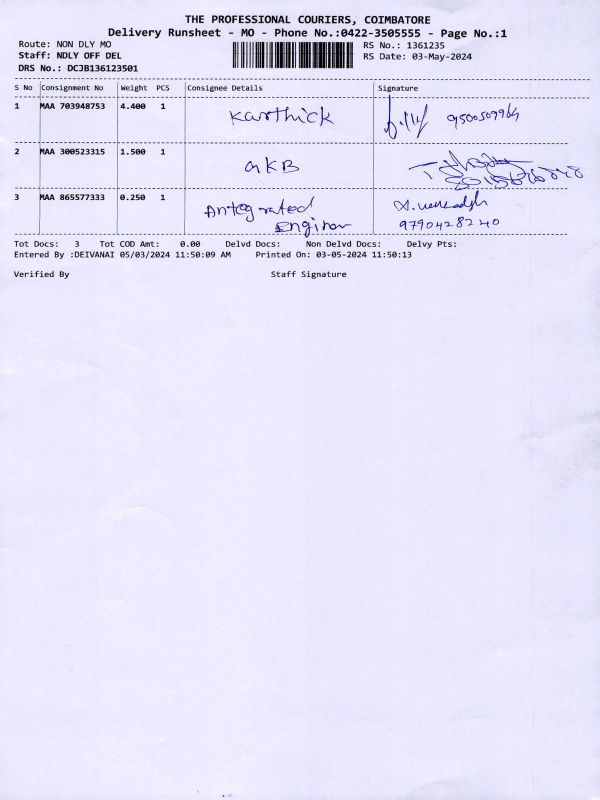 THE PROFESSIONAL COURIERS, COIMBATORE
Delivery Runsheet - MO - Phone No.:0422-3505555 - Page No.:1
Route: NON DLY MO RS No.: 1361235
Staff: NDLY OFF DEL RS Date: 03-May-2024
DRS No.: DCJB136123501
S No Consignment No Weight PCS Consignee Details Signature
1 MAA 703948753 4.400 1 Karthick 9500509964
2 MAA 300523315 1.500 1 GKB
3 MAA 865577333 0.250 1 Antegrated
Enginer 9790428240
Tot Docs: 3 Tot COD Amt: 0.00 Delvd Docs: Non Delvd Docs: Delvy Pts:
Entered By :DEIVANAI 05/03/2024 11:50:09 AM Printed On: 03-05-2024 11:50:13
Verified By Staff Signature